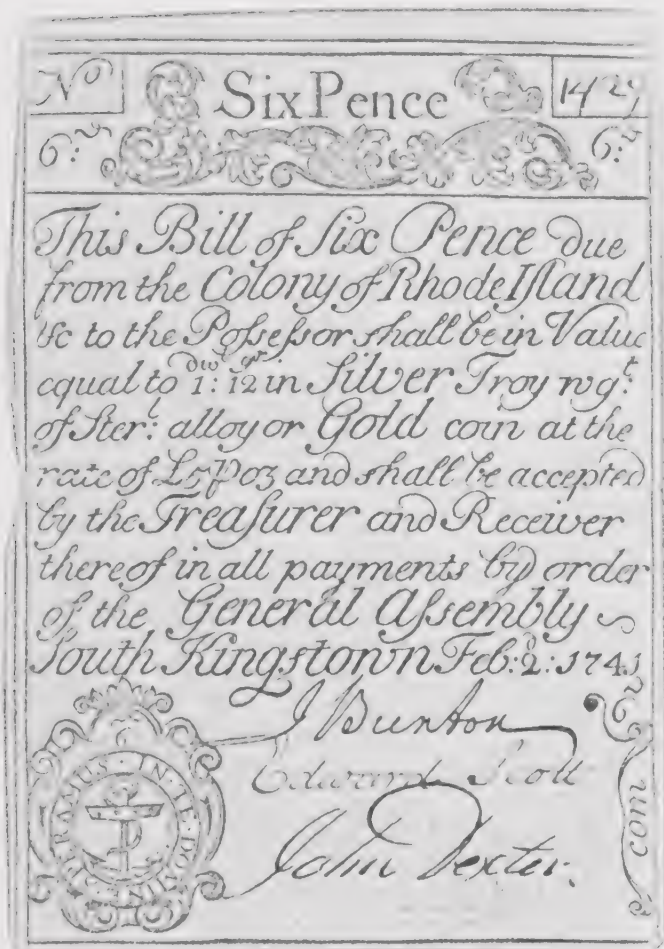 No Six Pence 14
6:d 6:d
This Bill of Six Pence due
from the Colony of Rhode Iſland
&c to the Poſseſsor shall be in Value
equal to 1:dwt 12gr in Silver Troy wgt:
of Ster:l alloy or Gold coin at the
rate of £5 ℔ oz and shall be accepted
by the Treaſurer and Receiver
thereof in all payments by order
of the General Aſsembly
South Kingstown Feb: 2: 1741
J Bunton
Edward Scott
John Dexter.
SPERAMUS · IN · TE · DOMINE
com